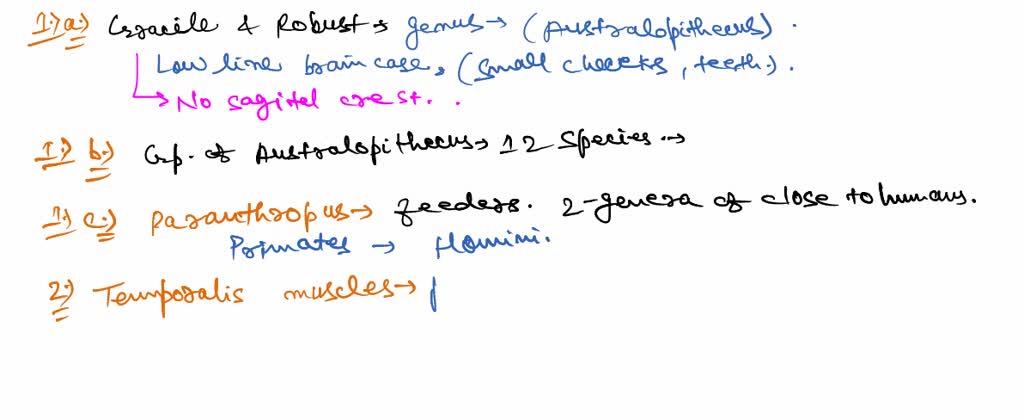 1.) a.) Gracile & Robust → genus → (Australopithecus).
Low line brain case, (small cheeks, teeth.).
→ No sagittel crest. .
1.) b.) Grp. of Australopithecus → 12 species →
1.) c.) Paranthropus → feeders. 2-genera of close to humans.
Primates → Homini.
2.) Temporalis muscles →